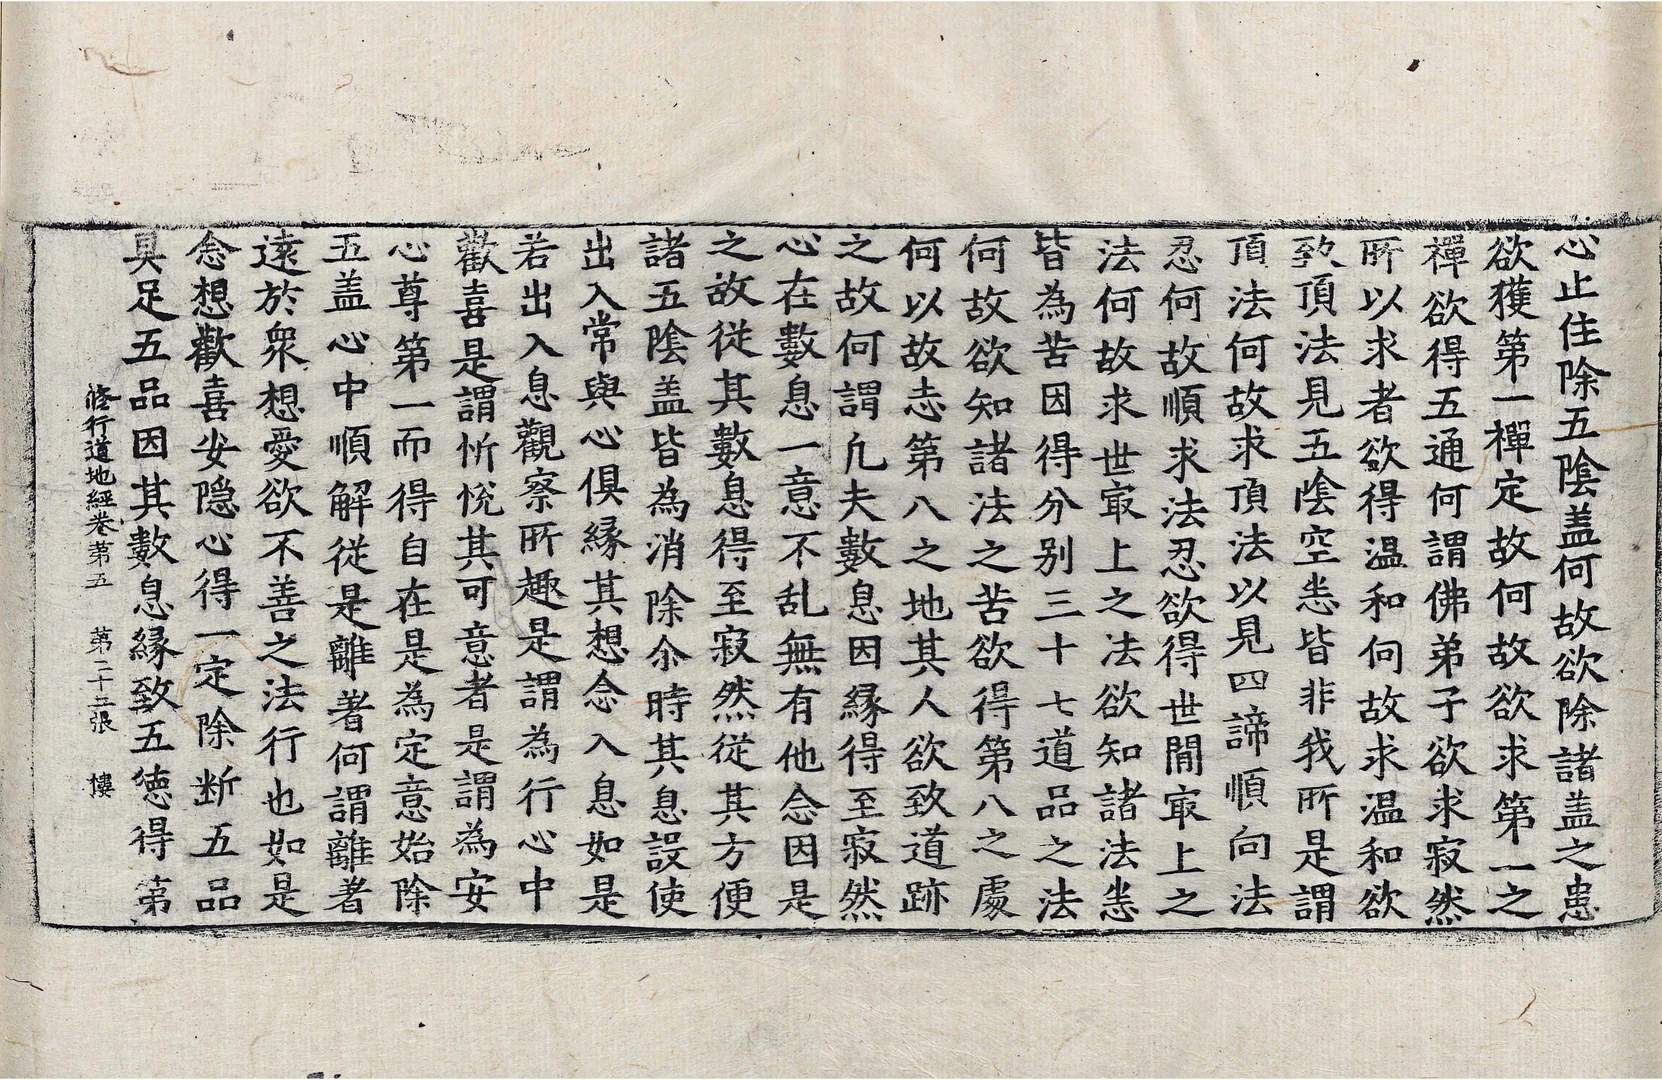 心止住除五陰盖何故欲除諸盖之患
欲獲第一禪定故何故欲求第一之
禪欲得五通何謂佛弟子欲求寂然
所以求者欲得温和何故求温和欲
致頂法見五陰空悉皆非我所是謂
頂法何故求頂法以見四諦順向法
忍何故順求法忍欲得世閒冣上之
法何故求世冣上之法欲知諸法悉
皆為苦因得分别三十七道品之法
何故欲知諸法之苦欲得第八之處
何以故志第八之地其人欲致道跡
之故何謂凢夫數息因緣得至寂然
心在數息一意不乱無有他念因是
之故從其數息得至寂然從其方便
諸五陰盖皆為消除尒時其息設使
出入常與心俱緣其想念入息如是
若出入息觀察所趣是謂為行心中
歡喜是謂忻悅其可意者是謂為安
心尊第一而得自在是為定意始除
五盖心中順解從是離著何謂離著
遠於衆想愛欲不善之法行也如是
念想歡喜安隠心得一定除断五品
具足五品因其數息緣致五德得第
修行道地經卷第五　第二十五張　樓